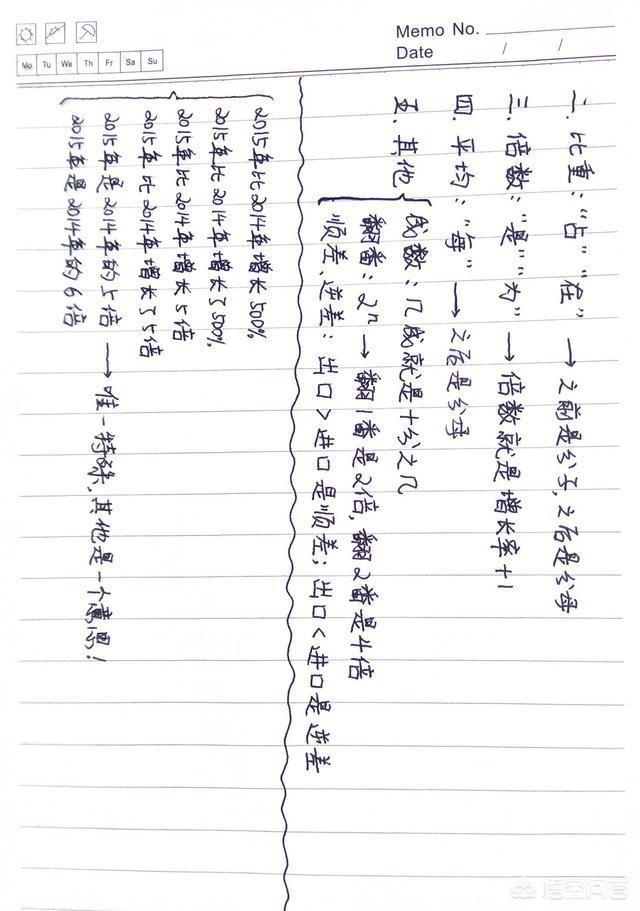 Memo No.
Date / /
Mo Tu We Th Fr Sa Su
二、比重：“占”“在” → 之前是分子，之后是分母
三、倍数：“是”“为” → 倍数就是增长率+1
四、平均：“每” → 之后是分母
五、其他
成数：几成就是十分之几
翻番：2ⁿ → 翻1番是2倍，翻2番是4倍
顺差、逆差：出口>进口是顺差；出口<进口是逆差
2015年比2014年增长500%
2015年比2014年增长了500%
2015年比2014年增长5倍
2015年比2014年增长了5倍
2015年是2014年的5倍 → 唯一特殊，其他是一个意思！
2015年是2014年的6倍
悟空问答